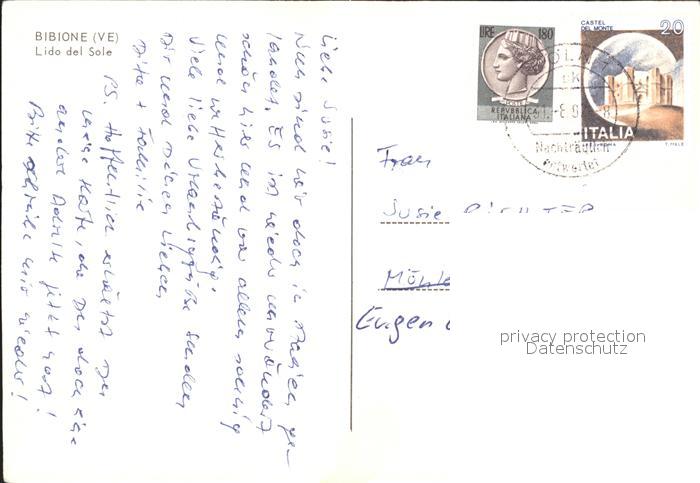 BIBIONE (VE)
Lido del Sole
Liebe Susie!
Nun sind wir doch in Italien ge-
landet. Es ist wieder wunderbar
schön hier und vor allem sonnig
und
Viele liebe Urlaubsgrüße senden
Dir und Deinen Lieben
+ Familie
PS. Hoffentlich erhältst Du
meine Karte, da Du doch eine
andere Adresse jetzt hast!
Bitte schreibe mir wieder!
LIRE 180
POSTE
REPVBBLICA
ITALIANA
CASTEL
DEL MONTE
20
ITALIA
Nachträglich
entwertet
Frau
Susie RICHTER
Eugen
privacy protection
Datenschutz